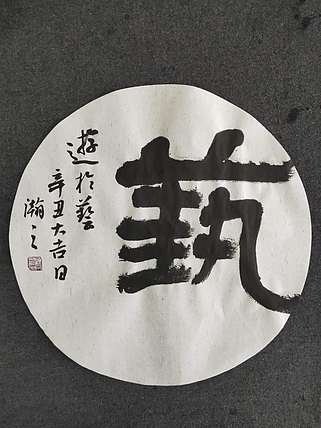 蓺
遊於藝
辛丑大吉日
瀚之